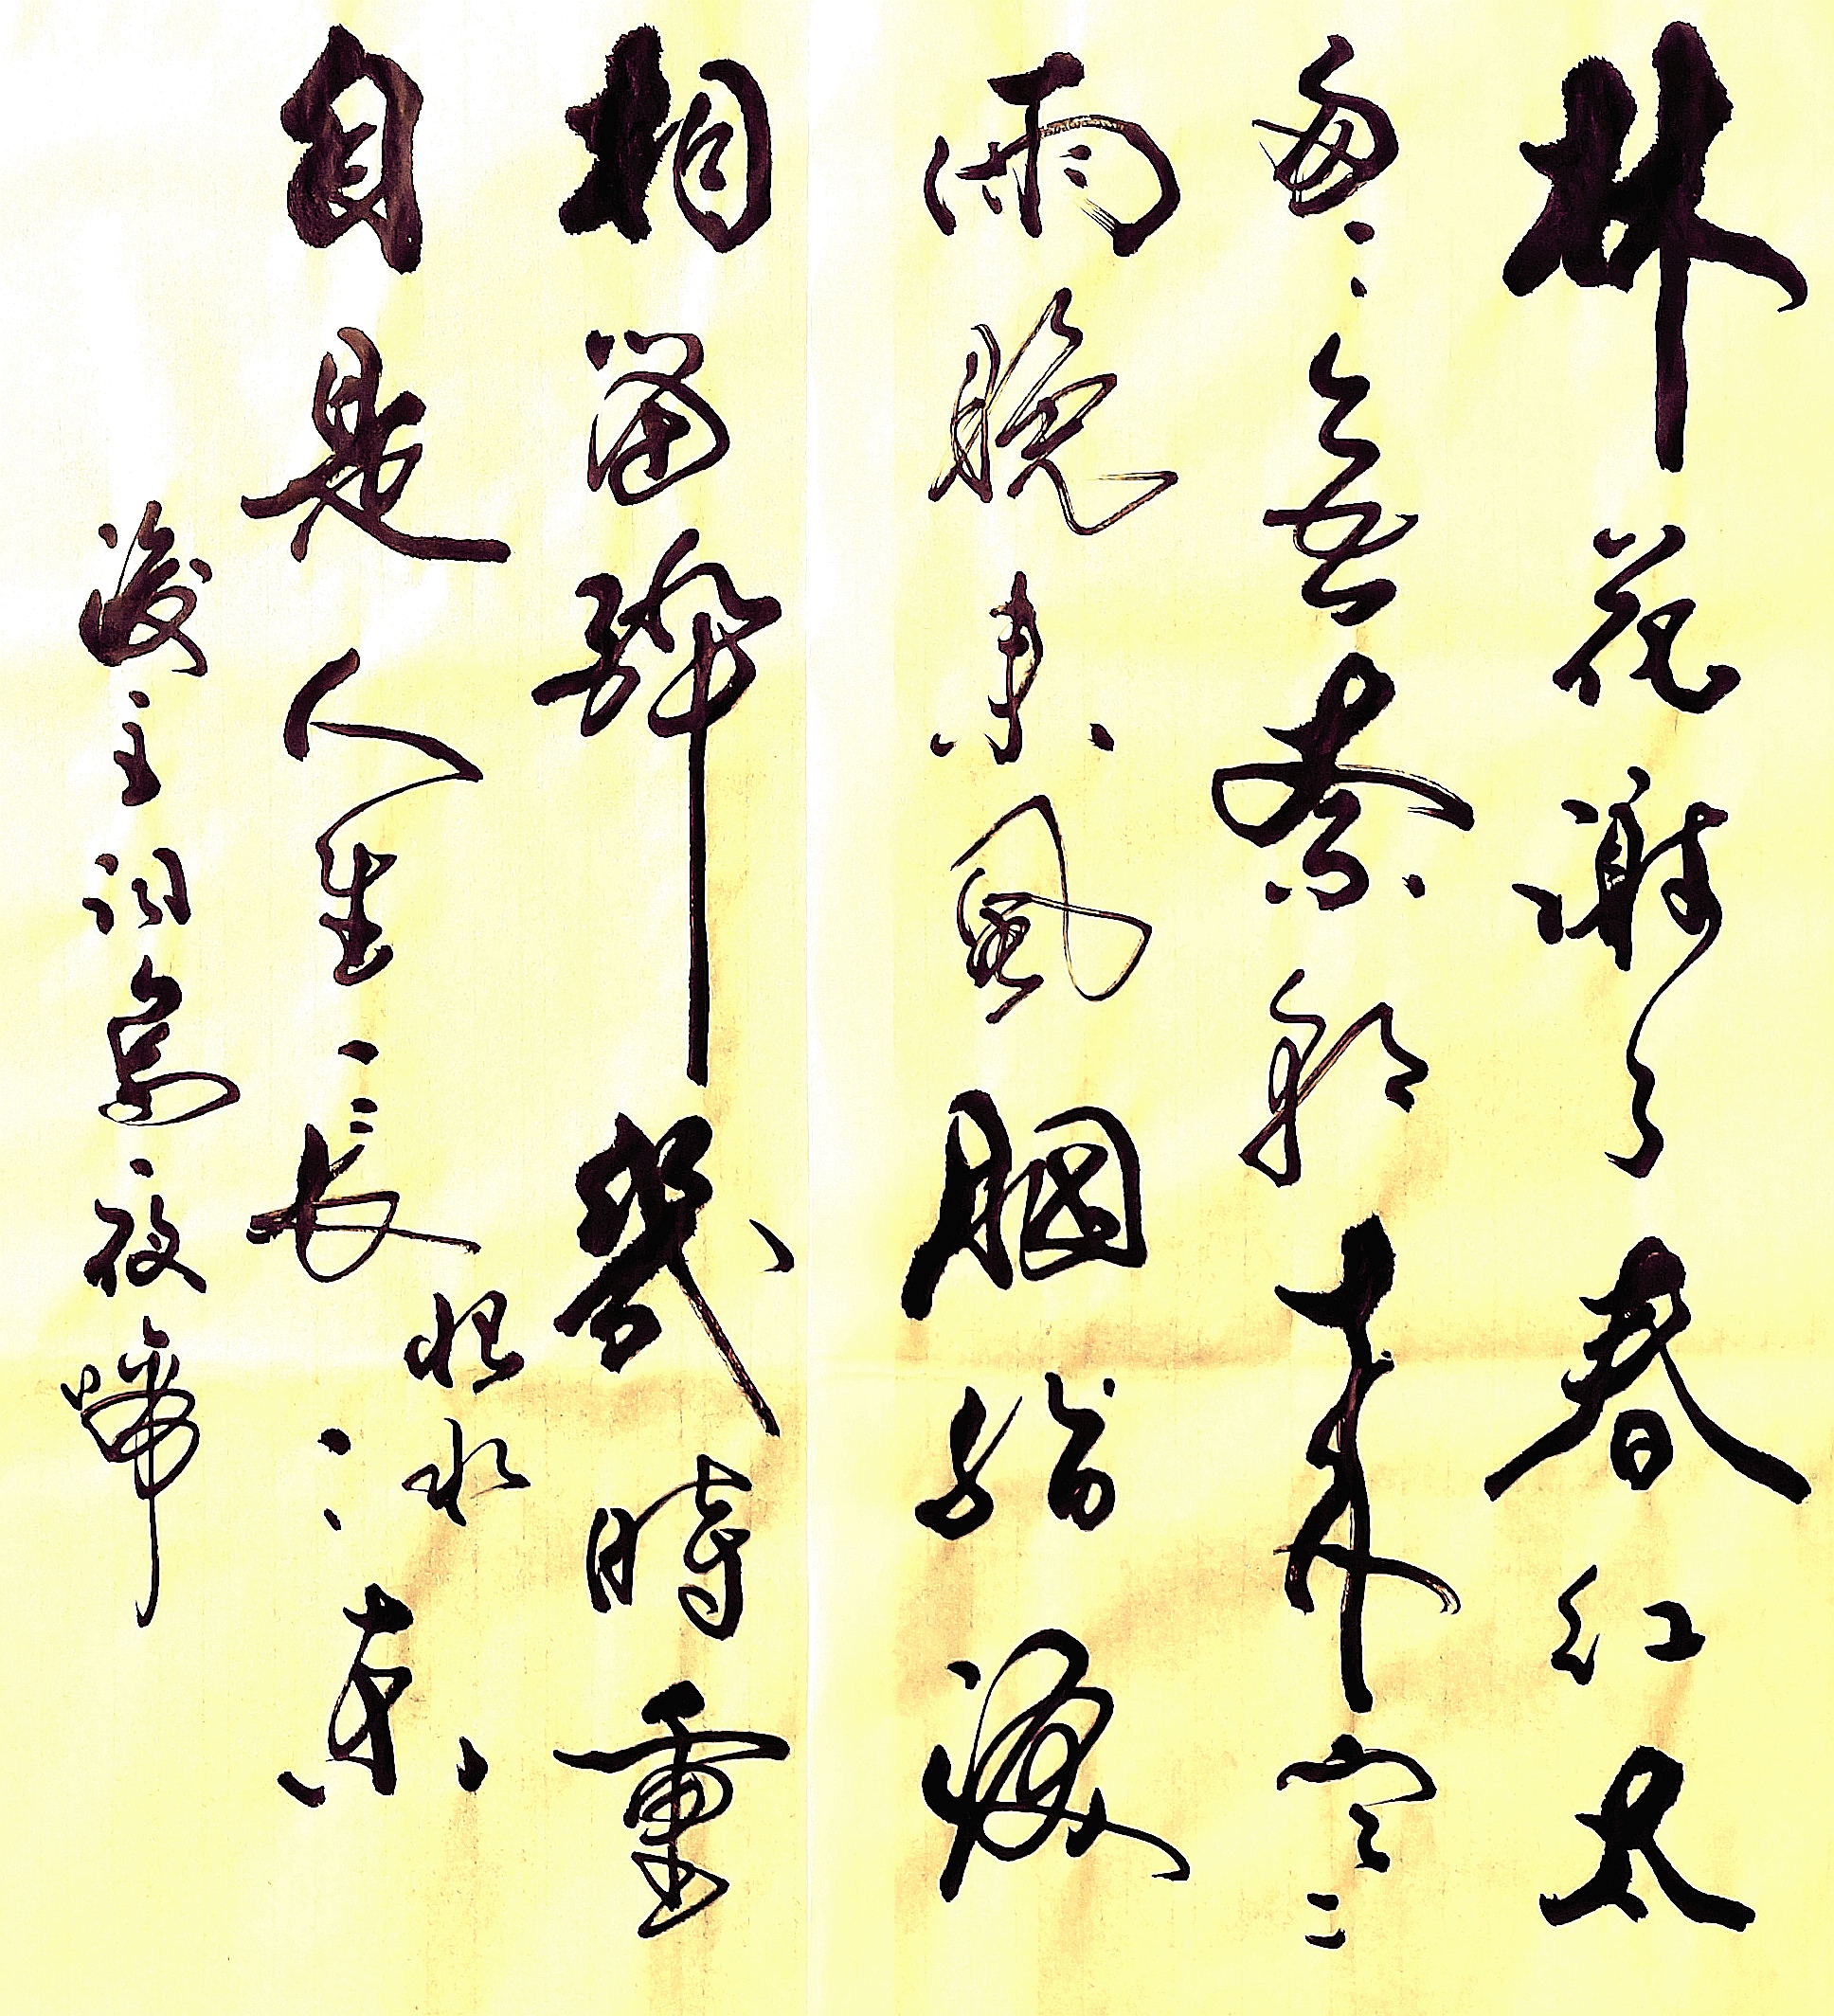 林花謝了春紅太
匆〻無奈朝來寒
雨晚來風胭脂淚
相留醉幾時重
自是人生長恨水〻東
後主詞烏夜啼